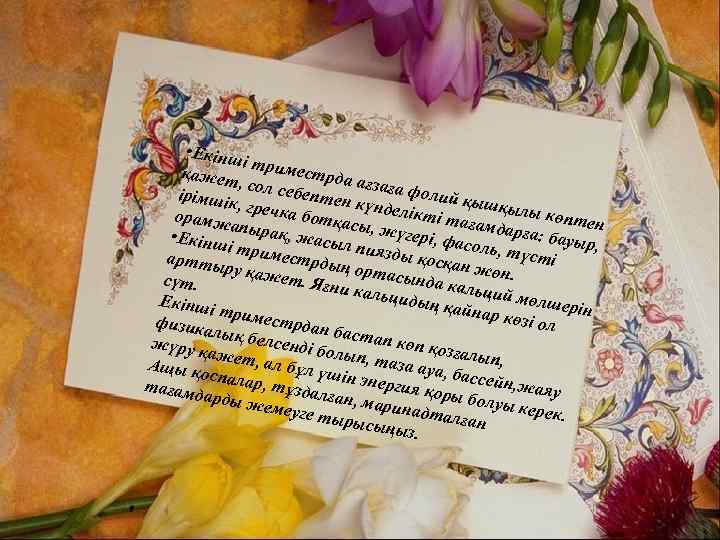 • Екінші триместрда ағзаға фолий қышқылы көптен
қажет, сол себептен күнделікті тағамдарға: бауыр,
ірімшік, гречка ботқасы, жүгері, фасоль, түсті
орамжапырақ, жасыл пиязды қосқан жөн.
• Екінші триместрдың ортасында кальций мөлшерін
арттыру қажет. Яғни кальцидың қайнар көзі ол
сүт.
Екінші триместрдан бастап көп қозғалып,
физикалық белсенді болып, таза ауа, бассейн,жаяу
жүру қажет, ал бұл үшін энергия қоры болуы керек.
Ащы қоспалар, тұздалған, маринадталған
тағамдарды жемеуге тырысыңыз.